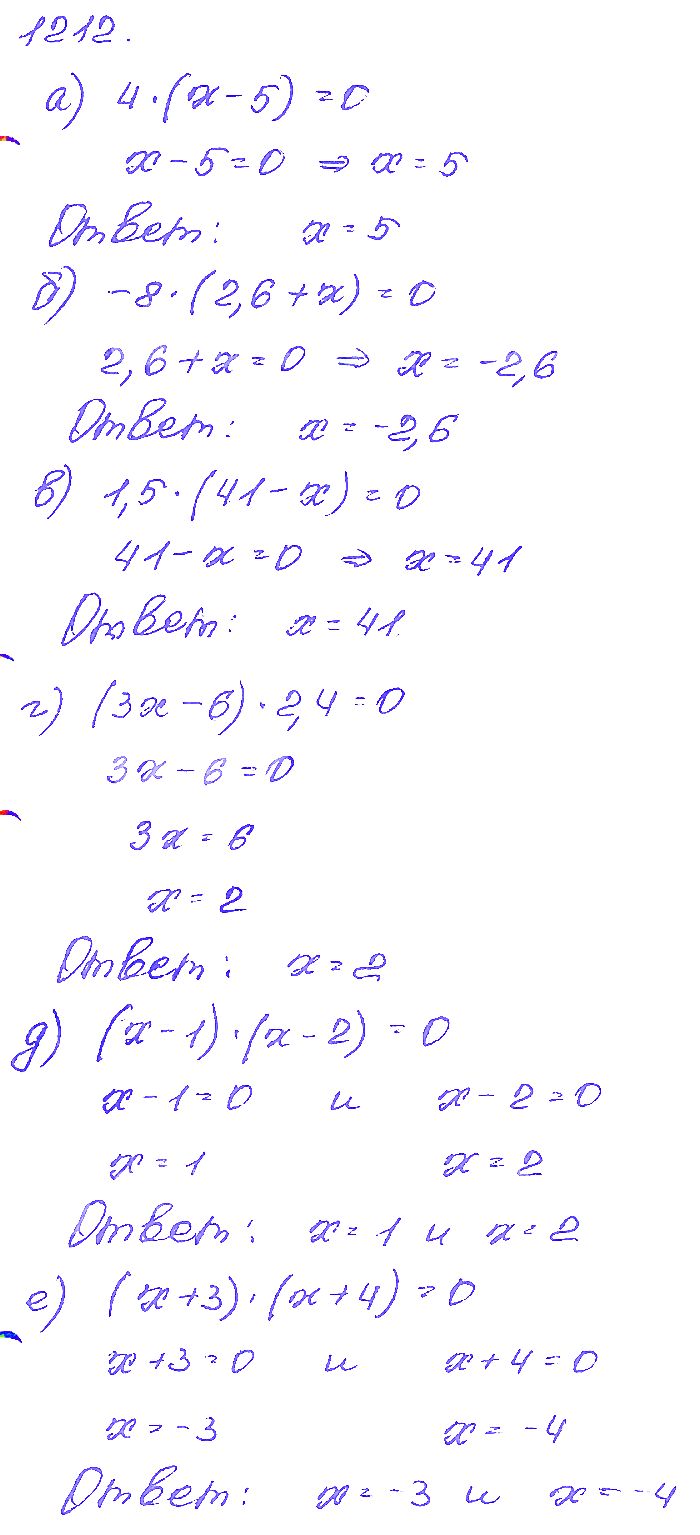 1212.
а) 4·(x-5) = 0
x-5=0 ⇒ x=5
Ответ: x=5
б) -8·(2,6+x) = 0
2,6+x=0 ⇒ x=-2,6
Ответ: x=-2,6
в) 1,5·(41-x)=0
41-x=0 ⇒ x=41
Ответ: x=41
г) (3x-6)·2,4=0
3x-6=0
3x=6
x=2
Ответ: x=2
д) (x-1)·(x-2)=0
x-1=0 и x-2=0
x=1 x=2
Ответ: x=1 и x=2
е) (x+3)·(x+4)=0
x+3=0 и x+4=0
x=-3 x=-4
Ответ: x=-3 и x=-4